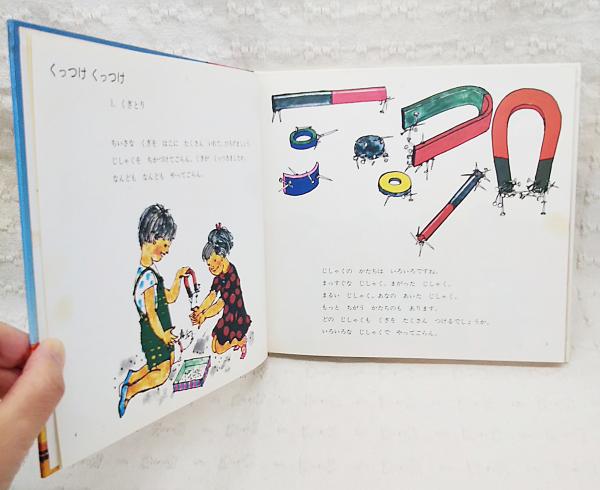 くっつけ くっつけ
1. くぎとり
ちいさな くぎを はこに たくさん いれて、ひろげましょう。
じしゃくを ちかづけてごらん。くぎが くっつきましたね。
なんども なんども やってごらん。
じしゃくの かたちは いろいろですね。
まっすぐな じしゃく。まがった じしゃく。
まるい じしゃく。あなの あいた じしゃく。
もっと ちがう かたちのも あります。
どの じしゃくも くぎを たくさん つけるでしょうか。
いろいろな じしゃくで やってごらん。